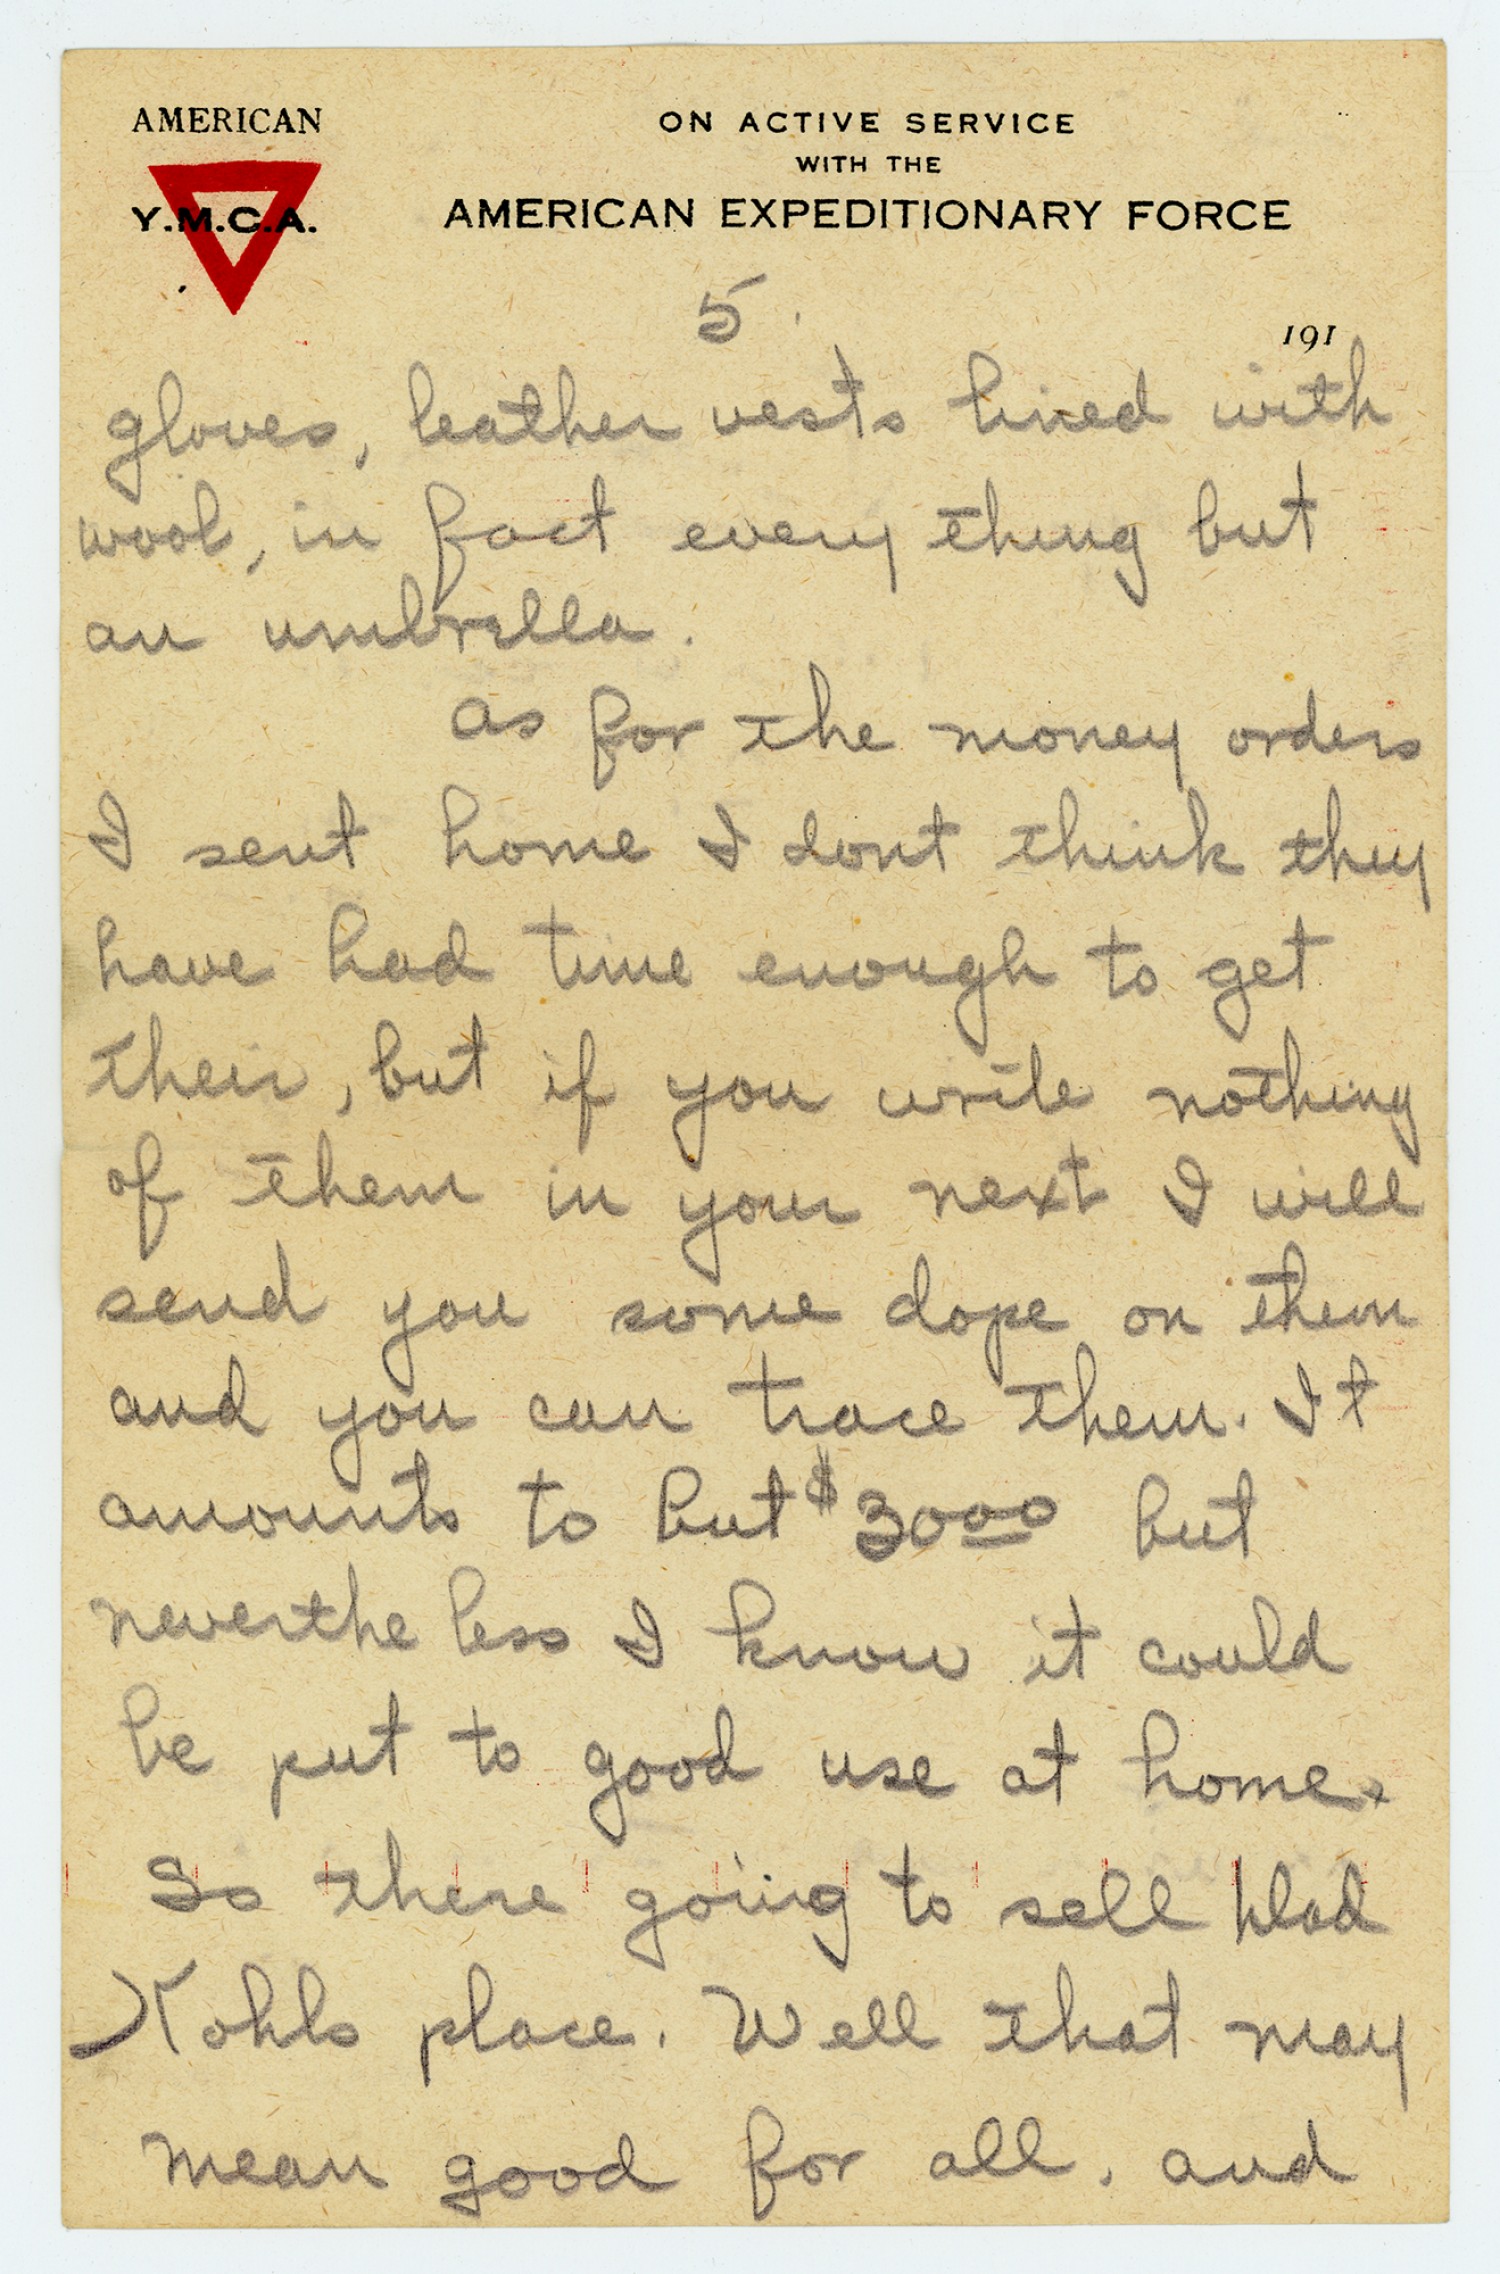 AMERICAN
Y.M.C.A.
ON ACTIVE SERVICE
WITH THE
AMERICAN EXPEDITIONARY FORCE
5
191
gloves, leather vests lined with
wool, in fact every thing but
an umbrella.
As for the money orders
I sent home I dont think they
have had time enough to get
their, but if you write nothing
of them in your next I will
send you some dope on them
and you can trace them. It
amounts to but $3000 but
neverthe less I know it could
be put to good use at home.
So there going to sell Wlad
Kohls place. Well that may
mean good for all. and